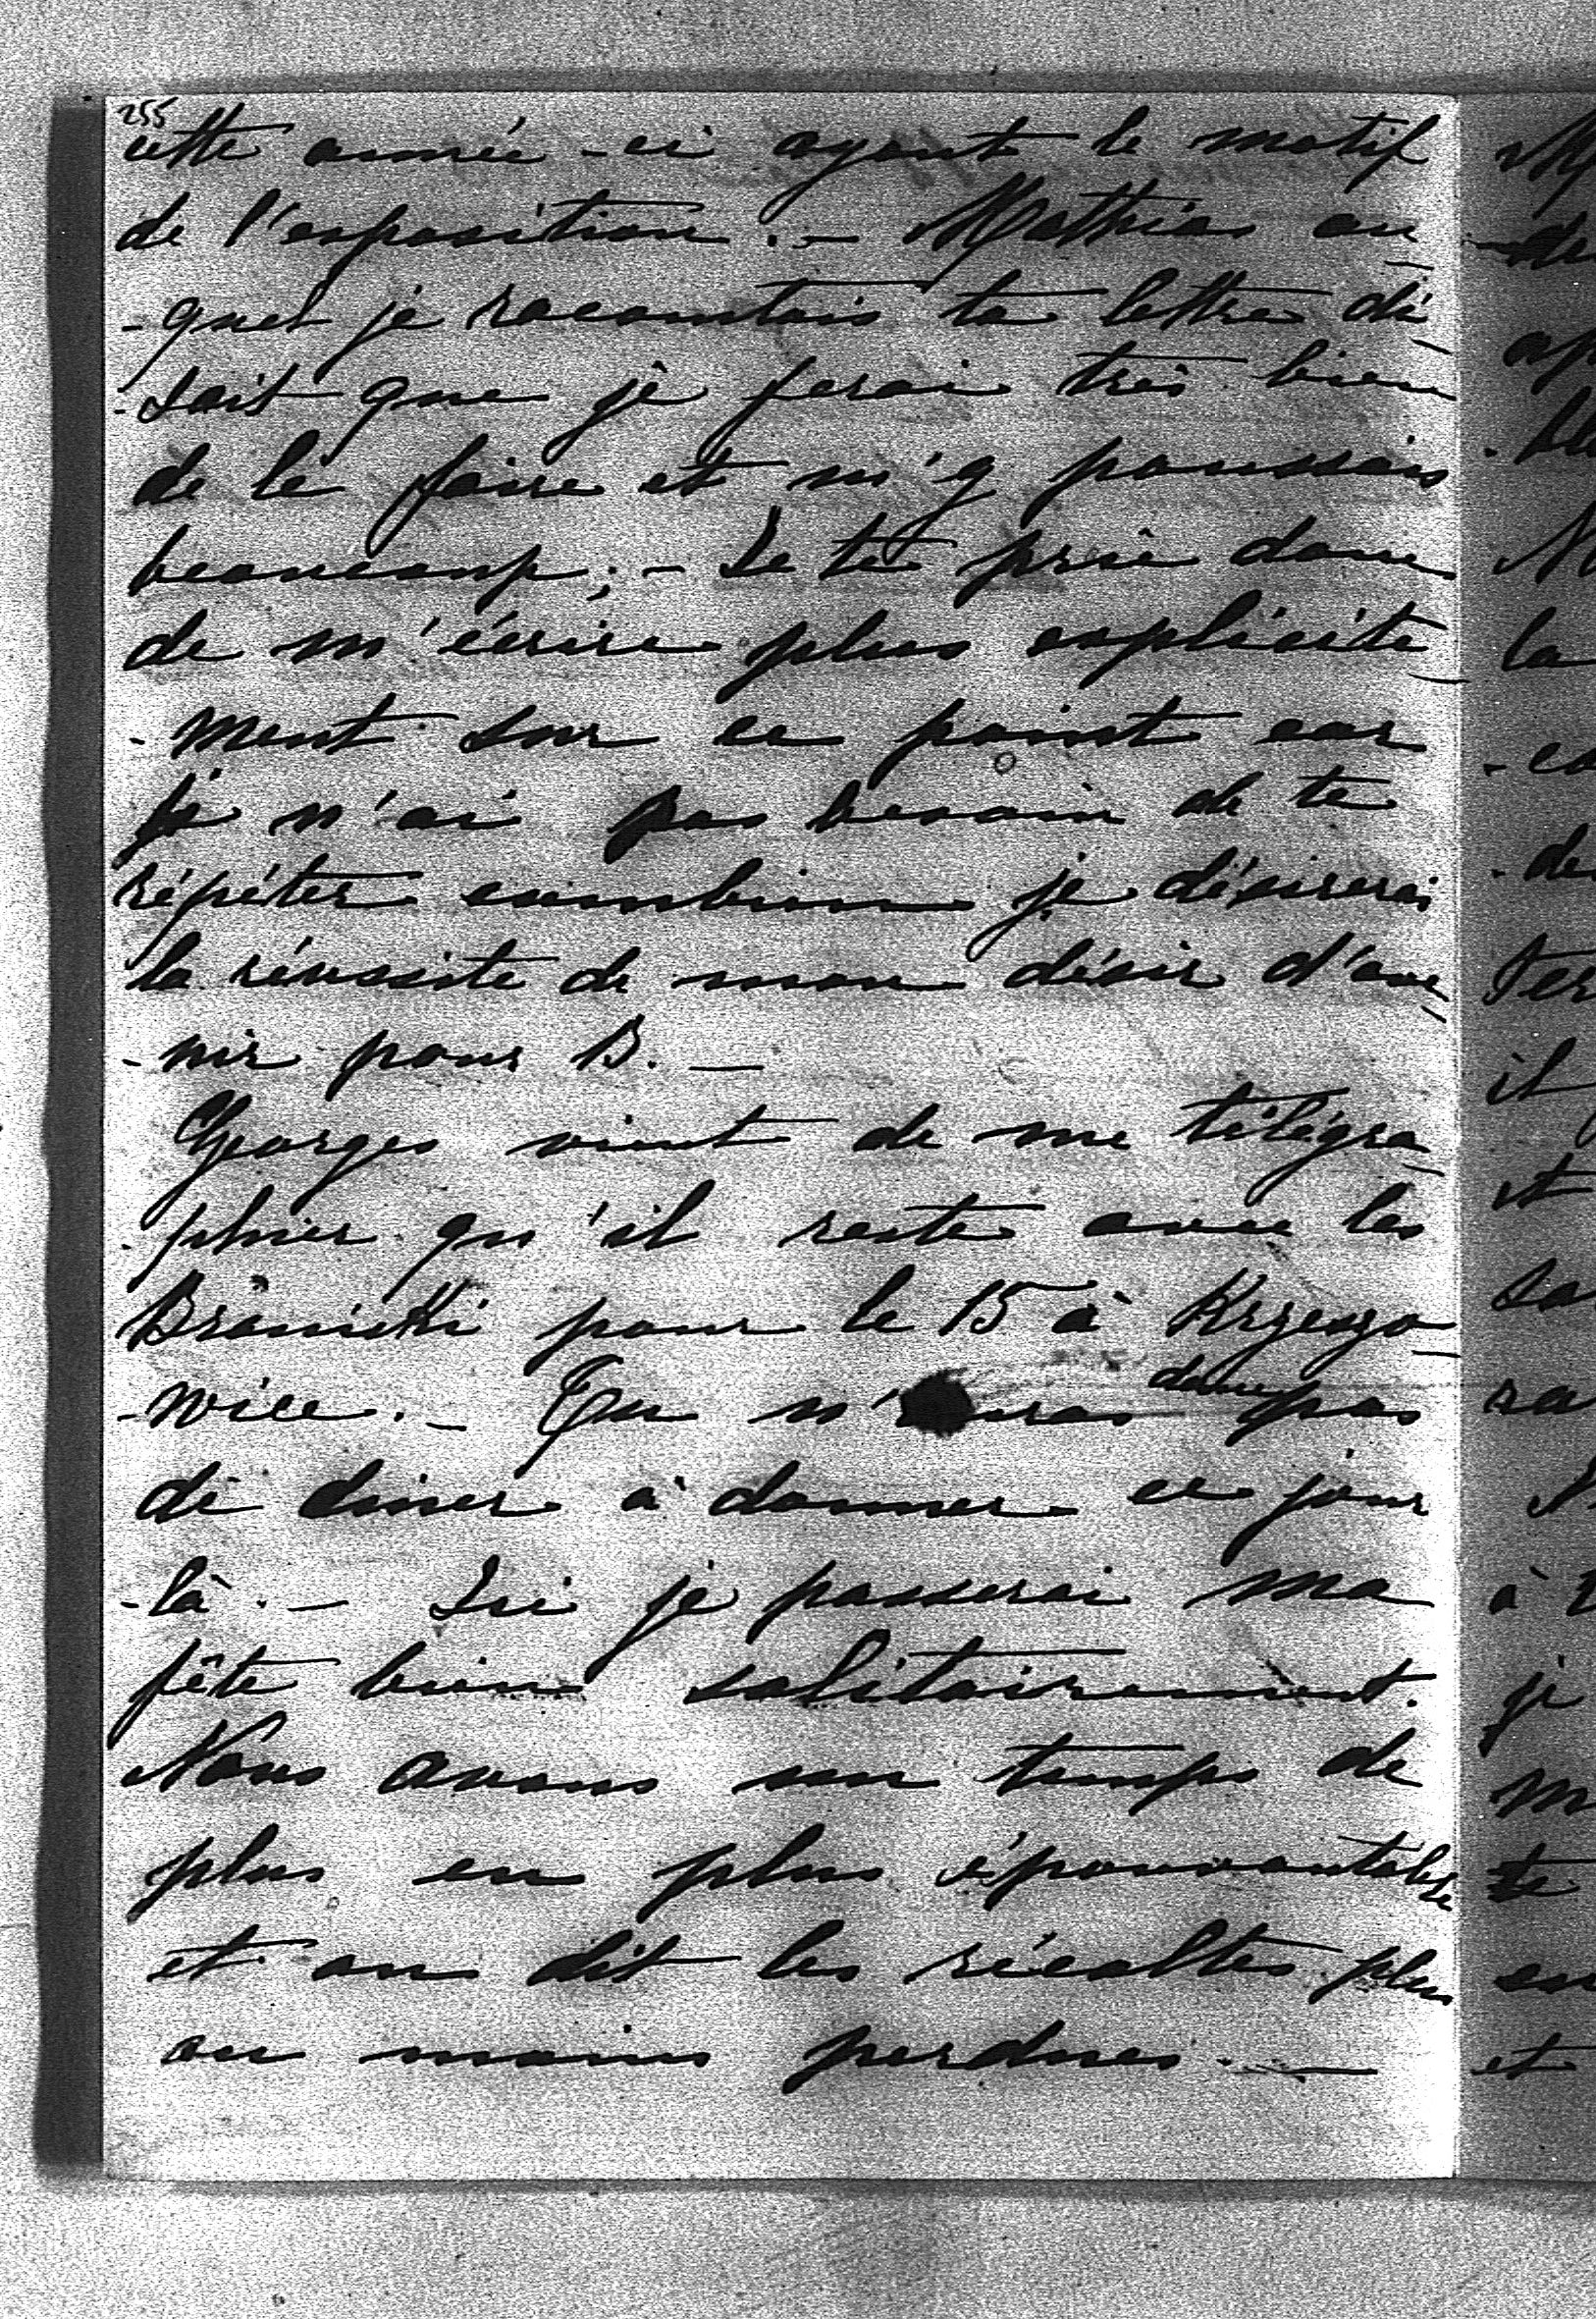 255
cette année-ci ayant le motif
de l'exposition. — Mathias au-
-quel je racontais ta lettre di-
-sait que je ferai très bien
de le faire et m'y poussais
beaucoup; — Je te prie donc
de m'écrire plus explicite-
-ment sur ce point car
je n'ai pas besoin de te
répéter combien je désirerai
la réussite de mon désir d'ave-
-nir pour B. —
Georges vient de me télégra-
-phier qu'il reste avec les
Branicki pour le 15 à Krzeszo-
-wice. — Tu n'auras donc pas
de diner à donner ce jour
-là. — Ici je passerai ma
fête bien solitairement.
Nous avons un temps de
plus en plus épouvantable
et on dit les récoltes plus
ou moins perdues. —